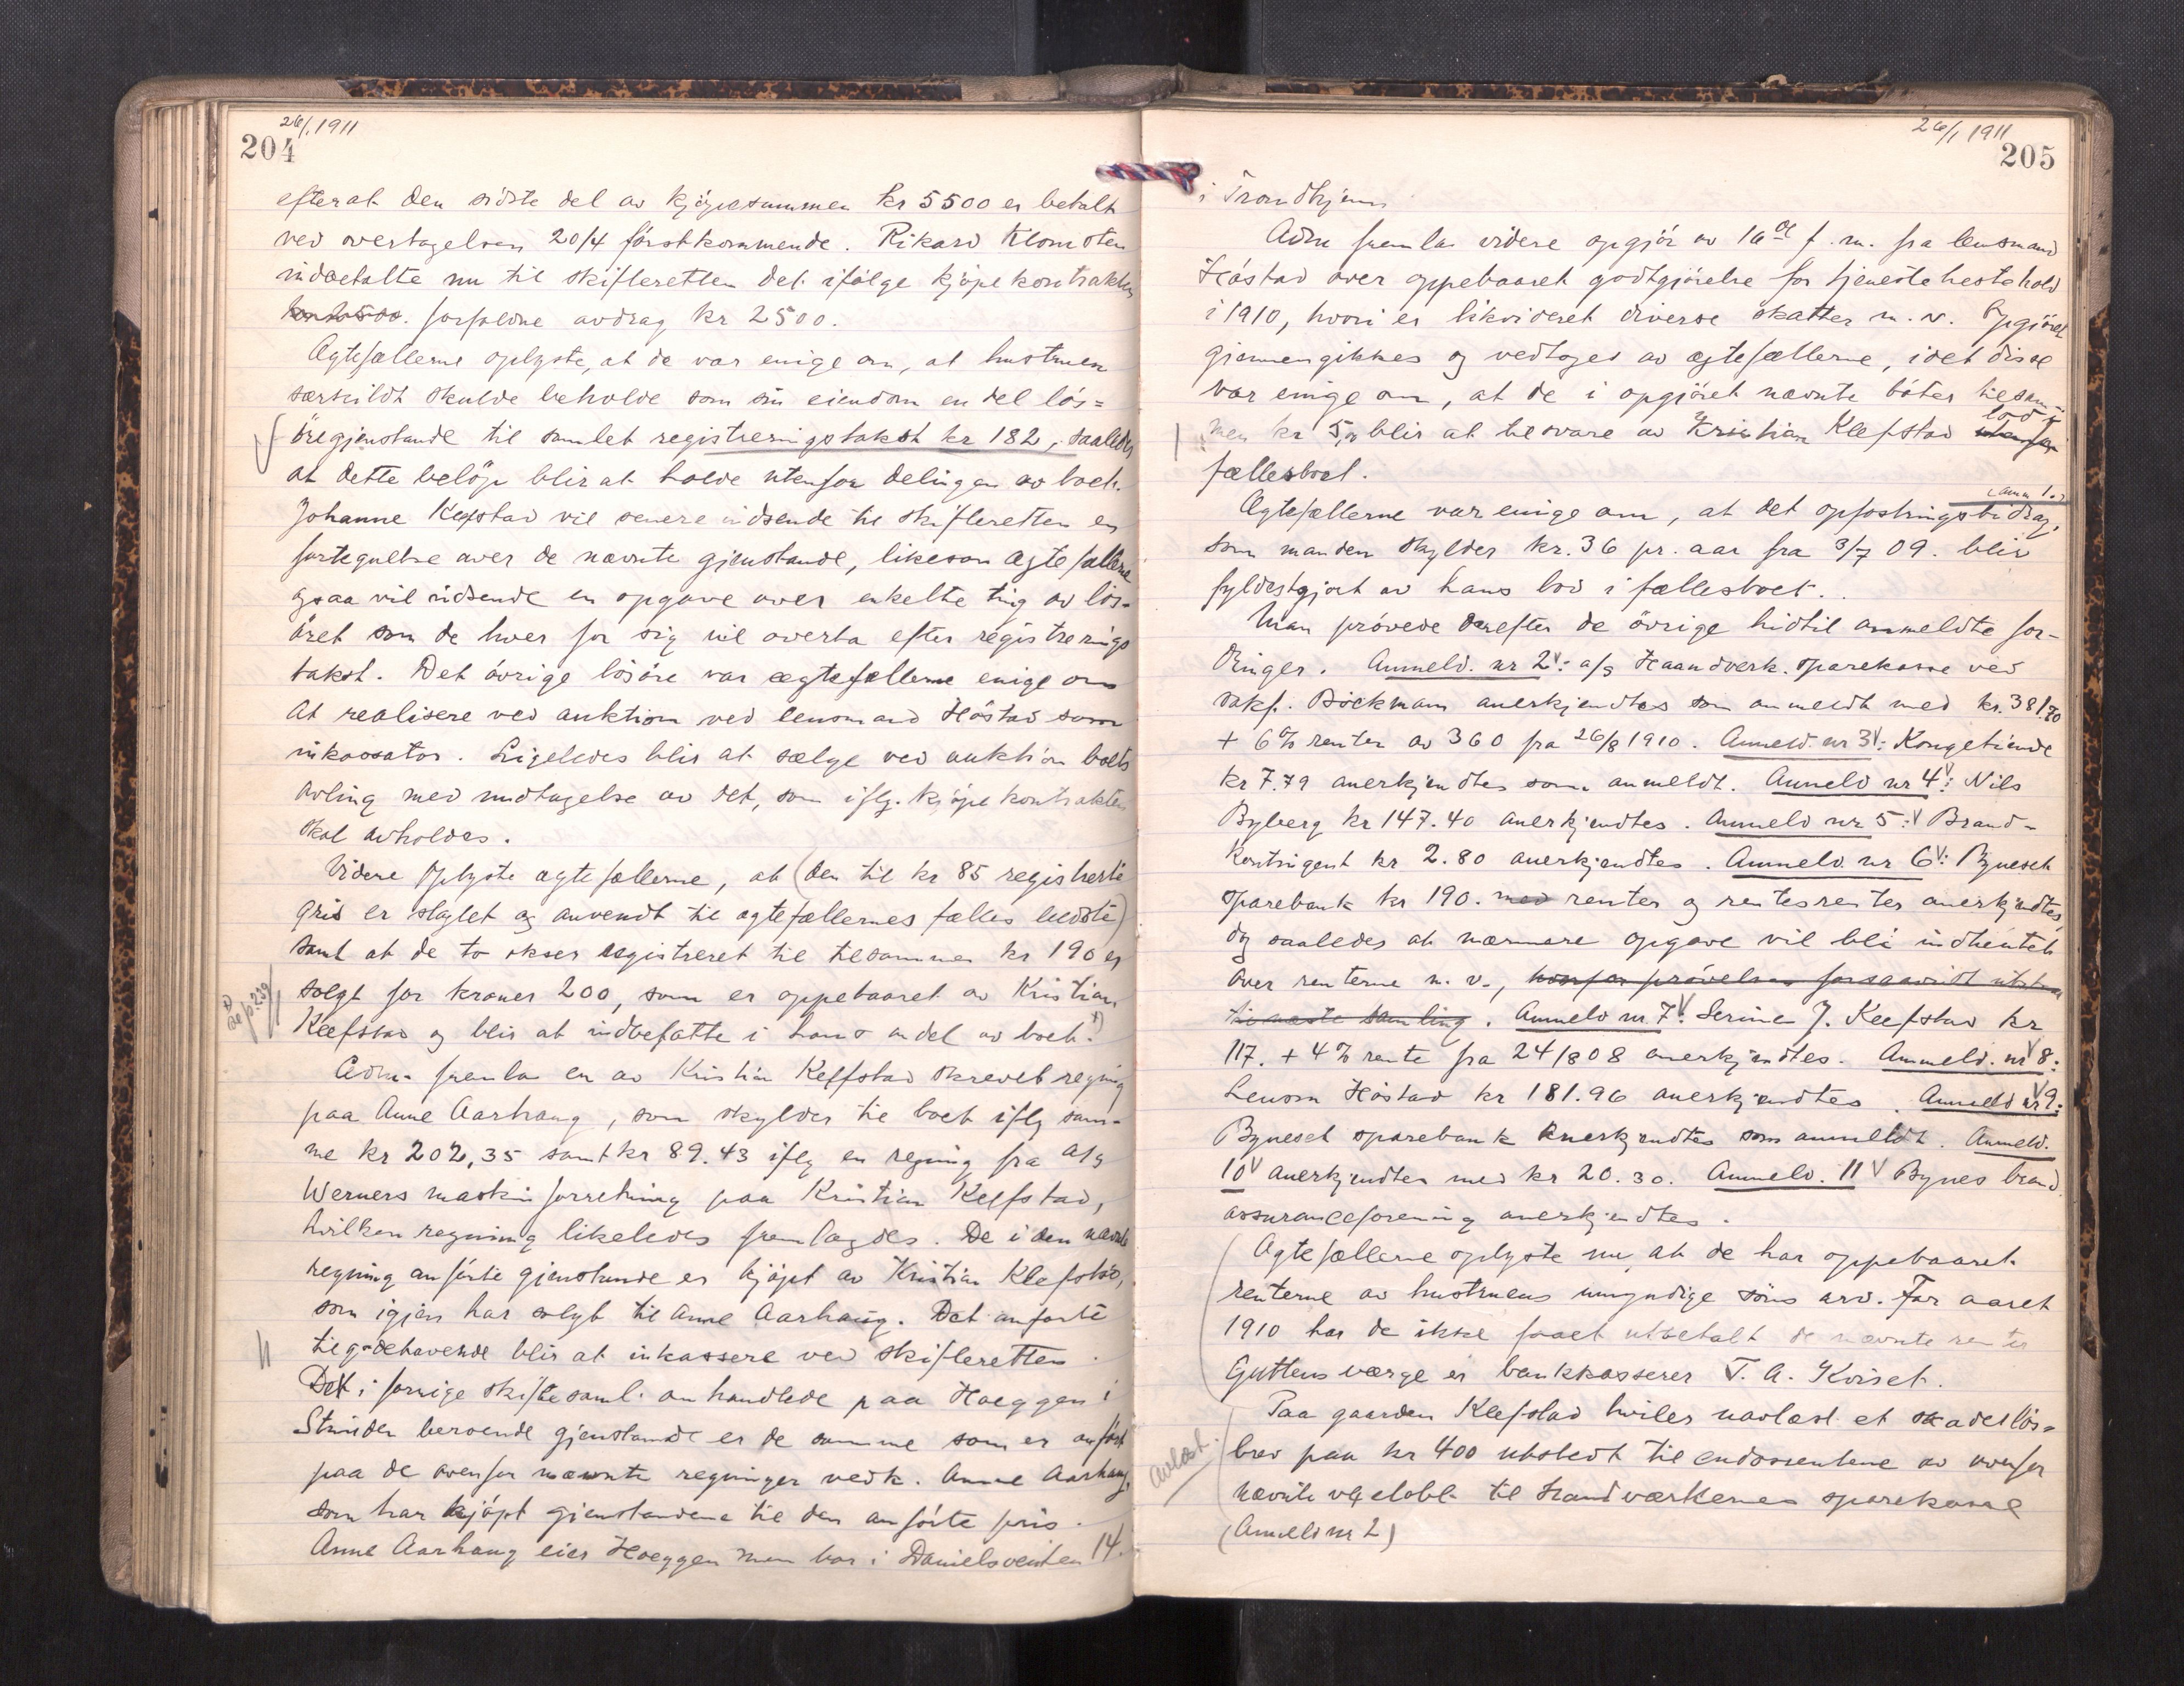 26/1 1911
204
efterat den sidste del av kjøpesummen kr 5500 er betalt
ved overtagelsen 20/4 førstkommende. Rikard Klomsten
indbetalte nu til skifteretten det ifølge kjøpekontrakten
forfaldne avdrag kr 2500.
Ægtefællerne oplyste, at de var enige om, at hustruen
særskildt skulde beholde som sin eiendom en del løs=
øregjenstande til samlet registreringstakst kr 182, saaledes
at dette beløp blir at holde utenfor delingen av boet.
Johanne Klefstad vil senere indsende til skifteretten en
fortegnelse over de nævnte gjenstande, likesom ægtefællerne
ogsaa vil indsende en opgave over enkelte ting av løs-
øret som de hver for sig vil overta efter registrerings
takst. Det øvrige løsøre var ægtefællerne enige om
at realisere ved auktion ved lensmand Høstad som
inkassator. Ligeledes blir at sælge ved auktion boets
avling med undtagelse av det, som iflg. kjøpekontrakten
skal avholdes.
Videre oplyste ægtefællerne, at (den til kr 85 registrerte
gris er slagtet og anvendt til ægtefællernes fælles bedste)
samt at de to okser registreret til tilsammen kr 190 er
solgt for kroner 200, som er oppebaaret av Kristian
Klefstad og blir at indbefatte i hans andel av boet. x)
x) se p. 239
Adm. fremla en av Kristian Klefstad skrevet regning
paa Anne Aarhaug, som skylder til boet iflg sam-
me kr 202,35 samt kr 89.43 iflg en regning fra A/S
Werners maskinforretning paa Kristian Klefstad,
hvilken regning likeledes fremlagdes. De i den nævnte
regning anførte gjenstande er kjøpt av Kristian Klefstad,
som igjen har solgt til Anne Aarhaug. Det anførte
tilgodehavende blir at inkassere ved skifteretten.
Det i forrige skiftesaml. omhandlede paa Hoeggen i
Strinden beroende gjenstande er de samme som er anført
paa de ovenfor nævnte regninger vedk. Anne Aarhaug,
som har kjøpt gjenstandene til den anførte pris.
Anne Aarhaug eier Hoeggen men bor i Danielsveiten 14.
26/1 1911
205
i Trondhjem
Adm fremla videre opgjør av 16de f. m. fra lensmand
Høstad over oppebaaret godtgjørelse for tjenestehestehold
i 1910, hvori er likvideret diverse skatter m. v. Opgjøret
gjennemgikkes og vedtoges av ægtefællerne, idet disse
var enige om, at de i opgjøret nævnte bøter tilsam-
men kr 5,00 blir at tilsvare av Kristian Klefstads lod i
fællesboet.
(Anm 1.)
Ægtefællerne var enige om, at det opfostringsbidrag,
som manden skylder kr. 36 pr. aar fra 3/7 09. blir
fyldestgjort av hans lod i fællesboet.
Man prøvede derefter de øvrige hidtil anmeldte for-
dringer. Anmeld. nr 2: a/s Haandverk. sparekasse ved
sakf. Bøckmann anerkjendtes som anmeldt med kr. 381.70
+ 6% renter av 360 fra 26/8 1910. Anmeld. nr 3: Kongetiende
kr 7.79 anerkjendtes som anmeldt. Anmeld nr 4: Nils
Byberg kr 147.40 anerkjendtes. Anmeld nr 5: Brand-
kontingent kr 2.80 anerkjendtes. Anmeld. nr 6: Byneset
sparebank kr 190. med renter og rentesrenter anerkjendtes,
dog saaledes at nærmere opgave vil bli indhentet
over renterne m. v., hvorfor prøvelsen forsaavidt utstaar
til næste samling. Anmeld nr 7: Serine J. Klefstad kr
117. + 4% rente fra 24/8 08 anerkjendtes. Anmeld. nr 8:
Lensm Høstad kr 181.96 anerkjendtes. Anmeld nr 9:
Byneset sparebank anerkjendtes som anmeldt. Anmeld.
10 anerkjendtes med kr 20.30. Anmeld. 11 Bynes brand
assuranceforening anerkjendtes.
Ægtefællerne oplyste nu, at de har oppebaaret
renterne av hustruens umyndige søns arv. For aaret
1910 har de ikke faaet utbetalt de nævnte renter
Guttens værge er bankkasserer T. A. Kviset.
Paa gaarden Klefstad hviler uavlæst et skadesløs-
brev paa kr 400 utstedt til endossentene av ovenfor
nævnte vexelobl. til Haandværkernes sparekasse
(Anmeld nr 2)
avlæst.